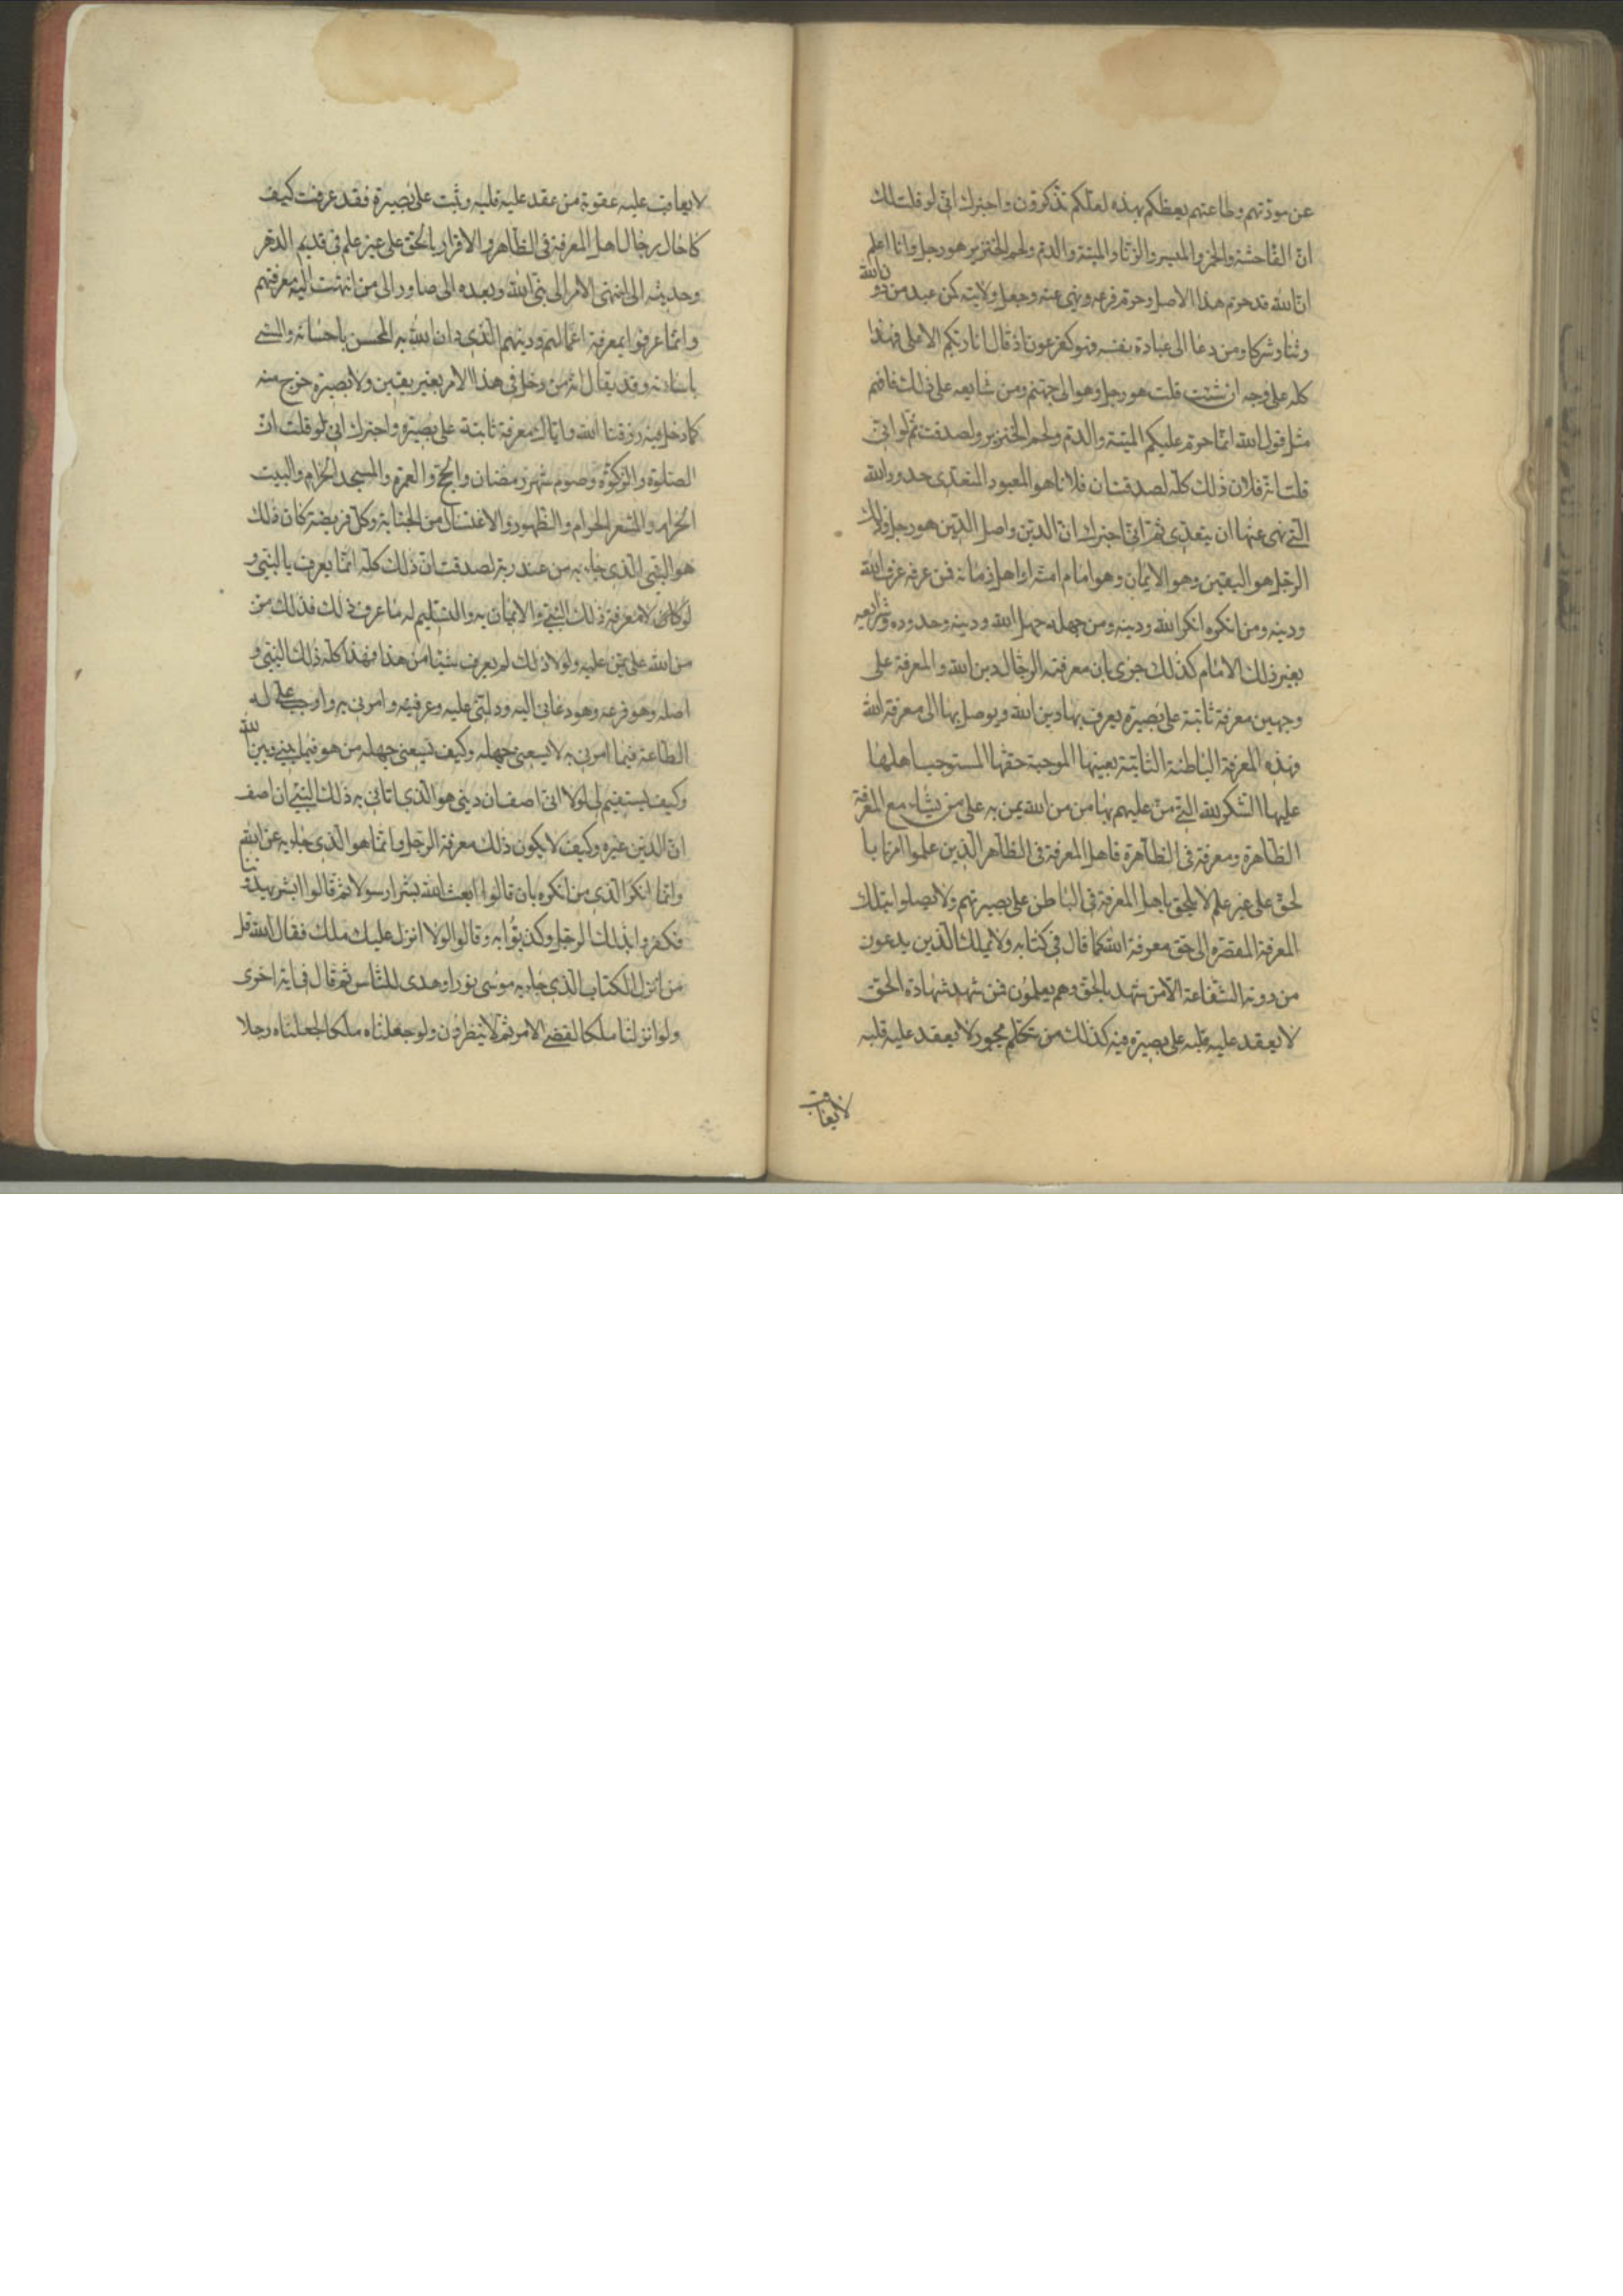 عن مودتهم وطاعتهم يعظكم بهذه لعلكم تذكرون واخبرك انى لو قلت لك
ان الفاحشة والخمر والميسر والزنا والميتة والدم ولحم الخنزير هو رجل وانا اعلم
ان الله قد حرم هذا الاصل وحرم فرعه ونهى عنه وجعل ولايته كمن عبد من دون الله
وثنا وشركا ومن دعا الى عبادة نفسه فهو كفرعون اذ قال انا ربكم الاعلى فهذا
كله على وجه ان شئت قلت هو رجل وهو الى جهنم ومن شايعه على ذلك فافهم
مثل قول الله انما حرم عليكم الميتة والدم ولحم الخنزير ولصدقت ثم لو انى
قلت انه فلان ذلك كله لصدقت ان فلانا هو المعبود المتعدى حدود الله
التى نهى عنها ان يتعدى ثم انى اخبرك ان الدين واصل الدين هو رجل وذلك
الرجل هو اليقين وهو الايمان وهو امام امته او اهل زمانه فمن عرفه عرف الله
ودينه ومن انكره انكر الله ودينه ومن جهله جهل الله ودينه وحدوده وشرايعه
بغير ذلك الامام كذلك جرى بان معرفة الرجال دين الله والمعرفة على
وجهين معرفة ثابتة على بصيرة يعرف بها دين الله ويوصل بها الى معرفة الله
فهذه المعرفة الباطنة الثابتة بعينها الموجبة حقها المستوجب اهلها
عليها الشكر لله التى من عليهم بها من من الله يمن به على من يشاء مع المعرفة
الظاهرة ومعرفة فى الظاهرة فاهل المعرفة فى الظاهر الذين علموا امرنا با
لحق على غير علم لا يلحق باهل المعرفة فى الباطن على بصيرتهم ولا يصلوا بتلك
المعرفة المقصرة الى حق معرفة الله كما قال فى كتابه ولا يملك الذين يدعون
من دونه الشفاعة الا من شهد بالحق وهم يعلمون فمن شهد شهادة الحق
لا يعقد عليه قلبه على بصيرة فيه كذلك من تكلم بجور لا يعقد عليه قلبه
لا يعاقب
لا يعاقب عليه عقوبة من عقد عليه قلبه وثبت على بصيرة فقد عرفت كيف
كا حال رجال اهل المعرفة فى الظاهر والاقرار بالحق على غير علم فى قديم الدهر
وحديثه الى ان انتهى الامر الى نبى الله وبعده الى صاور الى من انتهت اليه معرفتهم
وانما عرفوا بمعرفة اعمالهم ودينهم الذى دان الله به المحسن باحسانه والمسى
باساءته وقد يقال انه من دخل فى هذا الامر بغير يقين ولا بصيرة خرج منه
كما دخل فيه رزقنا الله واياك معرفة ثابتة على بصيرة واخبرك انى لو قلت ان
الصلوة والزكوة وصوم شهر رمضان والحج والعمرة والمسجد الحرام والبيت
الحرام والمشعر الحرام والطهور والاغتسال من الجنابة وكل فريضة كان ذلك
هو النبى الذى جاء به من عند ربه لصدقت ان ذلك كله انما يعرف بالنبى و
لو كان لا معرفة ذلك النبى والايمان به والتسليم له ما عرف ذلك فذلك من
من الله على من يمن عليه ولولا ذلك لم يعرف شيئا من هذا فهذا كله ذلك النبى و
اصله وهو فرعه وهو دعانى اليه ودلنى عليه وعرفنيه وامرنى به واوجب على له
الطاعة فيما امرنى به لا يسعنى جهله وكيف يسعنى جهله من هو فيما بينى وبين الله
وكيف يستقيم لى لولا انى اصف ان دينى هو الذى اتانى به ذلك النبى ان اصف
ان الدين غيره وكيف لا يكون ذلك معرفة الرجل وانما هو الذى جاء به عن الله
وانما انكر الذى من انكره بان قالوا ابعث الله بشرا رسولا ثم قالوا ابشر يهدوننا
فكفروا بذلك الرجل وكذبوا به وقالوا لولا انزل عليك ملك فقال الله قل
من انزل الكتاب الذى جاء به موسى نورا وهدى للناس ثم قال فى اية اخرى
ولو انزلنا ملكا لقضى الامر ثم لا ينظرون ولو جعلناه ملكا لجعلناه رجلا